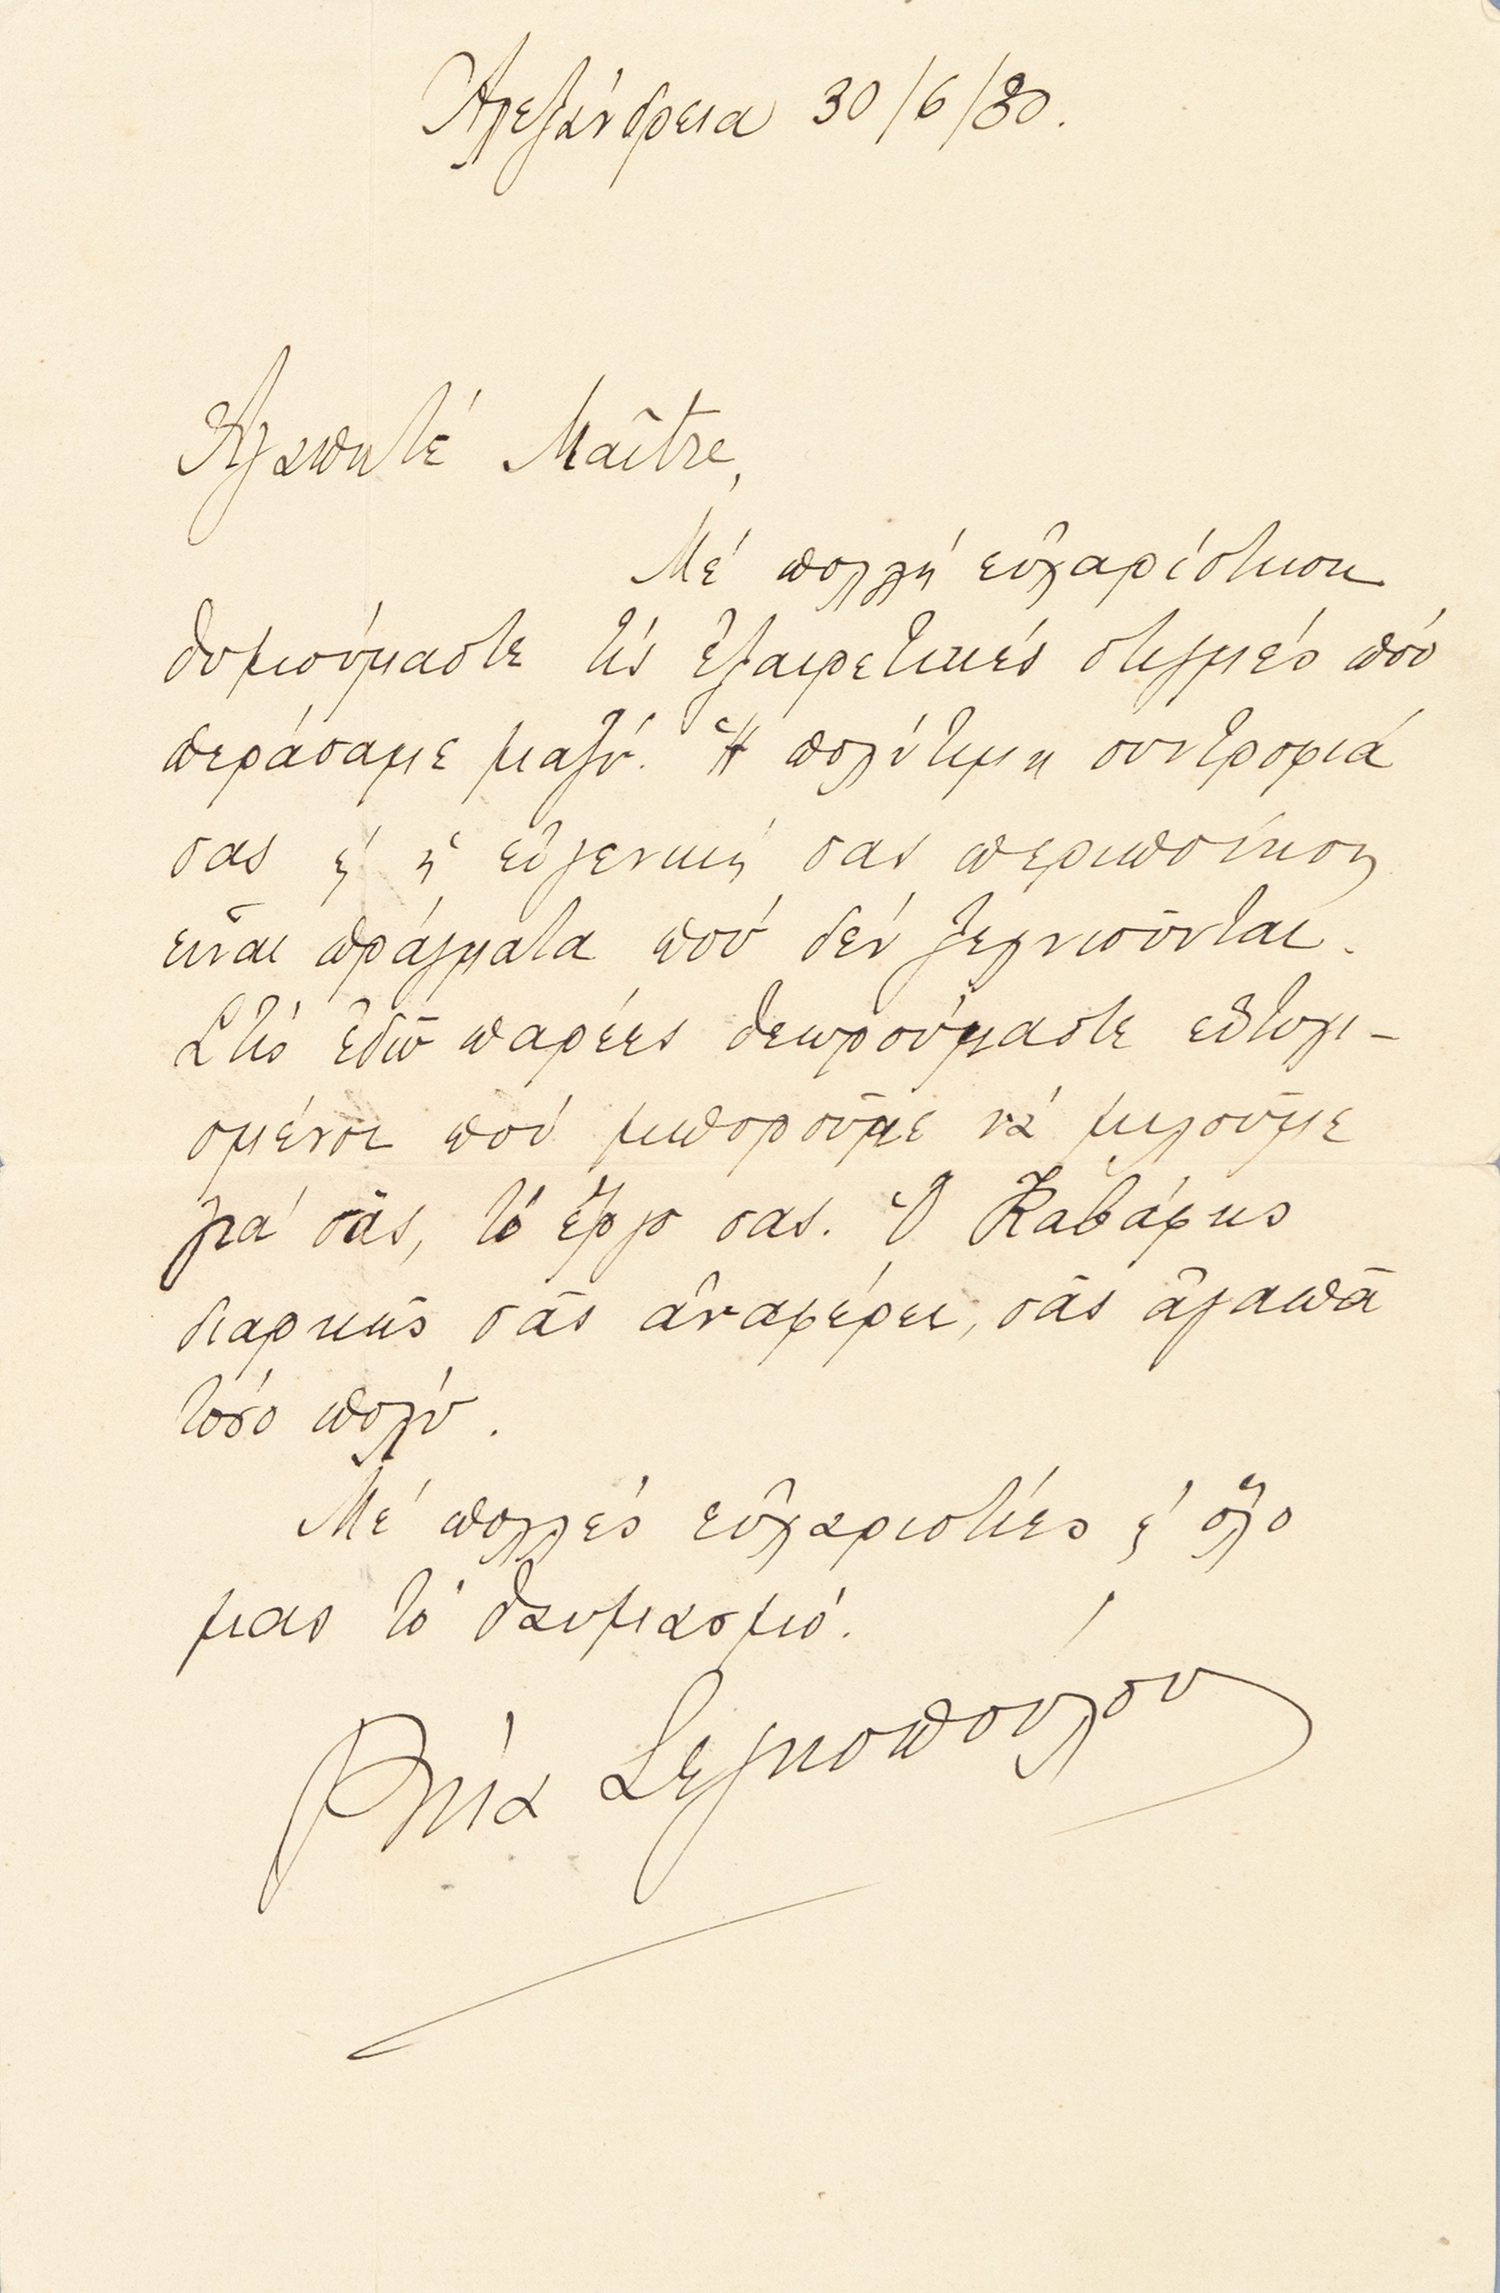 Ἀλεξάνδρεια 30/6/30.
Ἀγαπητέ Maître,
Μέ πολλή εὐχαρίστηση
θυμιούμαστε τίς ἐξαιρετικές στιγμές πού
περάσαμε μαζύ. Ἡ πολύτιμη συντροφιά
σας ϗ ἡ εὐγενική σας περιποίηση
εἶναι πράγματα πού δέν ξεχνιοῦνται.
Στίς ἐδῶ παρέες θεωρούμαστε εὐτυχι-
σμένοι πού μποροῦμε νά μιλοῦμε
γιά σᾶς, τό ἔργο σας. Ὁ Καβάφης
διαρκῶς σᾶς ἀναφέρει, σᾶς ἀγαπᾶ
τόσο πολύ.
Μέ πολλές εὐχαριστίες ϗ ὅλο
μας τό θαυμασμό.
Ρίκα Σεγκοπούλου